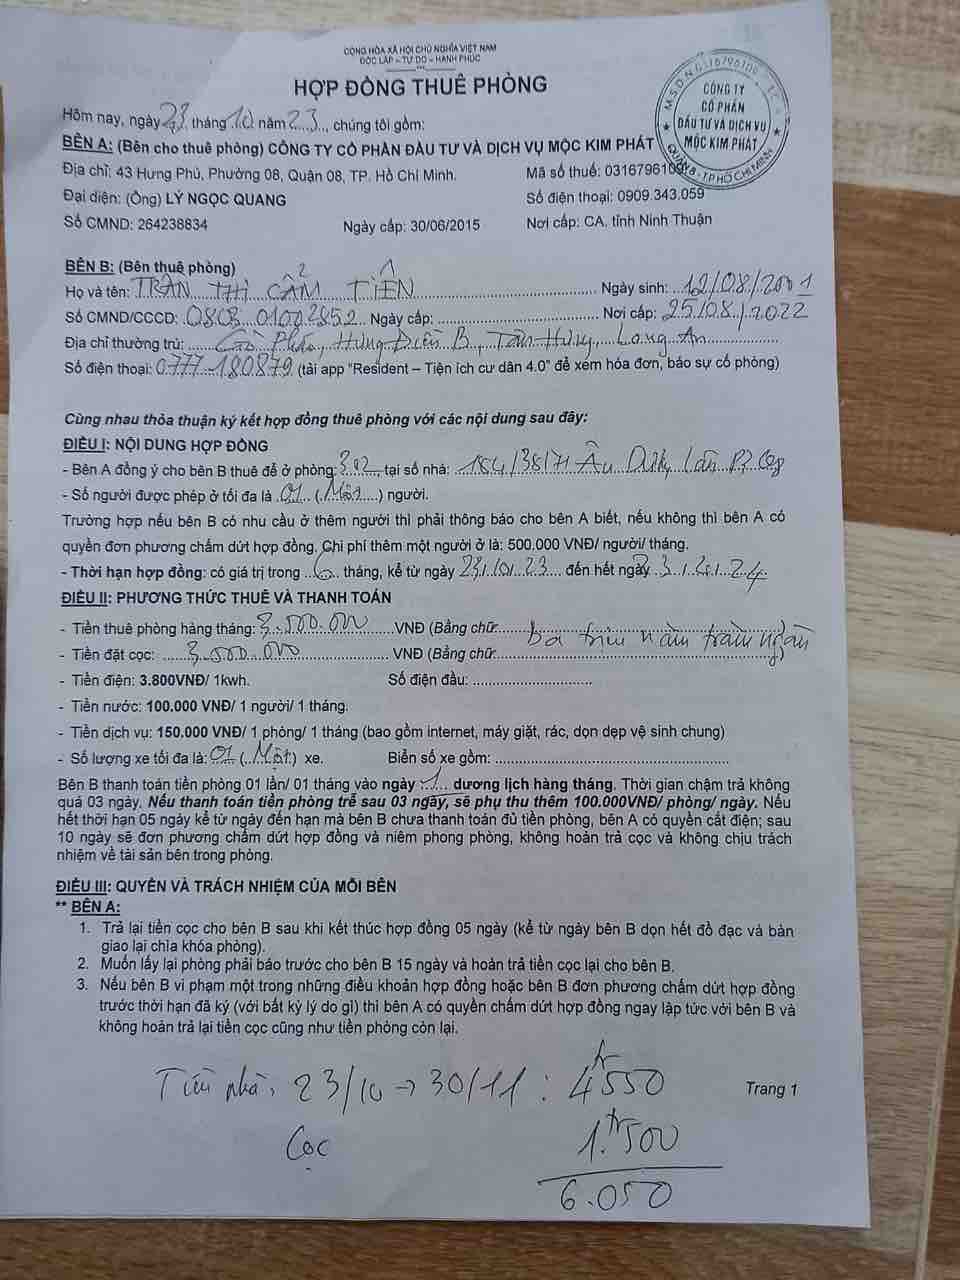 CỘNG HÒA XÃ HỘI CHỦ NGHĨA VIỆT NAM
ĐỘC LẬP – TỰ DO – HẠNH PHÚC
HỢP ĐỒNG THUÊ PHÒNG
Hôm nay, ngày 23 tháng 10 năm 23, chúng tôi gồm:
M.S.D.N:0316796109
CÔNG TY
CỔ PHẦN
ĐẦU TƯ VÀ DỊCH VỤ
MỘC KIM PHÁT
QUẬN 8 - T.P HỒ CHÍ MINH
BÊN A: (Bên cho thuê phòng) CÔNG TY CỔ PHẦN ĐẦU TƯ VÀ DỊCH VỤ MỘC KIM PHÁT
Địa chỉ: 43 Hưng Phú, Phường 08, Quận 08, TP. Hồ Chí Minh. Mã số thuế: 0316796109
Đại diện: (Ông) LÝ NGỌC QUANG Số điện thoại: 0909.343.059
Số CMND: 264238834 Ngày cấp: 30/06/2015 Nơi cấp: CA. tỉnh Ninh Thuận
BÊN B: (Bên thuê phòng)
Họ và tên: TRẦN THỊ CẨM TIÊN Ngày sinh: 12/08/2001
Số CMND/CCCD: 0803 01002852 Ngày cấp: Nơi cấp: 25/08/2022
Địa chỉ thường trú: Gò Pháo, Hưng Điền B, Tân Hưng, Long An
Số điện thoại: 0777 180879 (tải app "Resident – Tiện ích cư dân 4.0" để xem hóa đơn, báo sự cố phòng)
Cùng nhau thỏa thuận ký kết hợp đồng thuê phòng với các nội dung sau đây:
ĐIỀU I: NỘI DUNG HỢP ĐỒNG
- Bên A đồng ý cho bên B thuê để ở phòng: 302, tại số nhà: 184/38/71 Âu Dương Lân P3 Q8
- Số người được phép ở tối đa là 01 (Một) người.
Trường hợp nếu bên B có nhu cầu ở thêm người thì phải thông báo cho bên A biết, nếu không thì bên A có
quyền đơn phương chấm dứt hợp đồng. Chi phí thêm một người ở là: 500.000 VNĐ/ người/ tháng.
- Thời hạn hợp đồng: có giá trị trong 6 tháng, kể từ ngày 23/10/23 đến hết ngày
ĐIỀU II: PHƯƠNG THỨC THUÊ VÀ THANH TOÁN
- Tiền thuê phòng hàng tháng: 3.500.000 VNĐ (Bằng chữ ba triệu năm trăm ngàn
- Tiền đặt cọc: 3.500.000 VNĐ (Bằng chữ )
- Tiền điện: 3.800VNĐ/ 1kwh. Số điện đầu:
- Tiền nước: 100.000 VNĐ/ 1 người/ 1 tháng.
- Tiền dịch vụ: 150.000 VNĐ/ 1 phòng/ 1 tháng (bao gồm internet, máy giặt, rác, dọn dẹp vệ sinh chung)
- Số lượng xe tối đa là: 01 (Một) xe. Biển số xe gồm:
Bên B thanh toán tiền phòng 01 lần/ 01 tháng vào ngày 1 dương lịch hàng tháng. Thời gian chậm trả không
quá 03 ngày. Nếu thanh toán tiền phòng trễ sau 03 ngày, sẽ phụ thu thêm 100.000VNĐ/ phòng/ ngày. Nếu
hết thời hạn 05 ngày kể từ ngày đến hạn mà bên B chưa thanh toán đủ tiền phòng, bên A có quyền cắt điện; sau
10 ngày sẽ đơn phương chấm dứt hợp đồng và niêm phong phòng, không hoàn trả cọc và không chịu trách
nhiệm về tài sản bên trong phòng.
ĐIỀU III: QUYỀN VÀ TRÁCH NHIỆM CỦA MỖI BÊN
** BÊN A:
1. Trả lại tiền cọc cho bên B sau khi kết thúc hợp đồng 05 ngày (kể từ ngày bên B dọn hết đồ đạc và bàn
giao lại chìa khóa phòng).
2. Muốn lấy lại phòng phải báo trước cho bên B 15 ngày và hoàn trả tiền cọc lại cho bên B.
3. Nếu bên B vi phạm một trong những điều khoản hợp đồng hoặc bên B đơn phương chấm dứt hợp đồng
trước thời hạn đã ký (với bất kỳ lý do gì) thì bên A có quyền chấm dứt hợp đồng ngay lập tức với bên B và
không hoàn trả lại tiền cọc cũng như tiền phòng còn lại.
Tiền nhà: 23/10 → 30/11 : 4tr550
Trang 1
Cọc 1.tr500
6.050